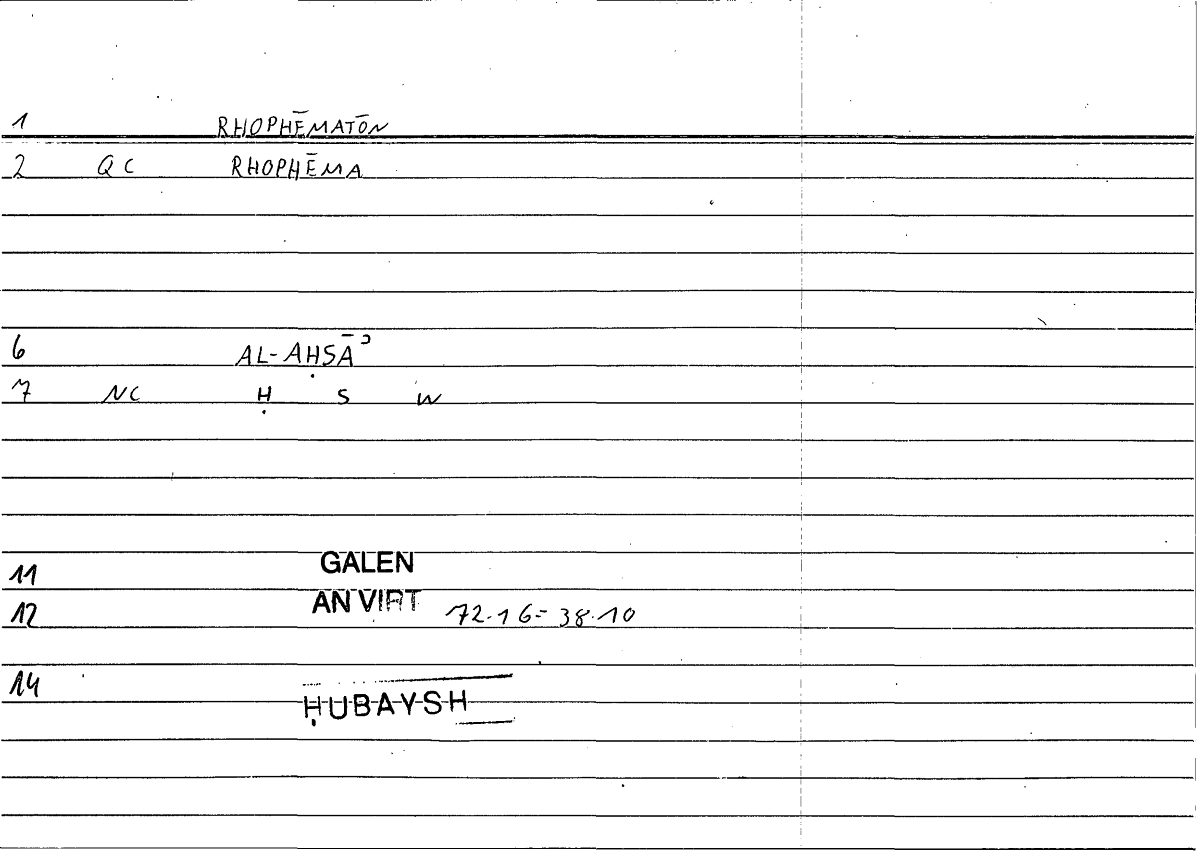 1 RHOPHĒMATŌN
2 QC RHOPHĒMA
6 AL-AḤSĀʾ
7 NC Ḥ S W
11 GALEN
12 AN VIRT 72.16=38.10
14 ḤUBAYSH